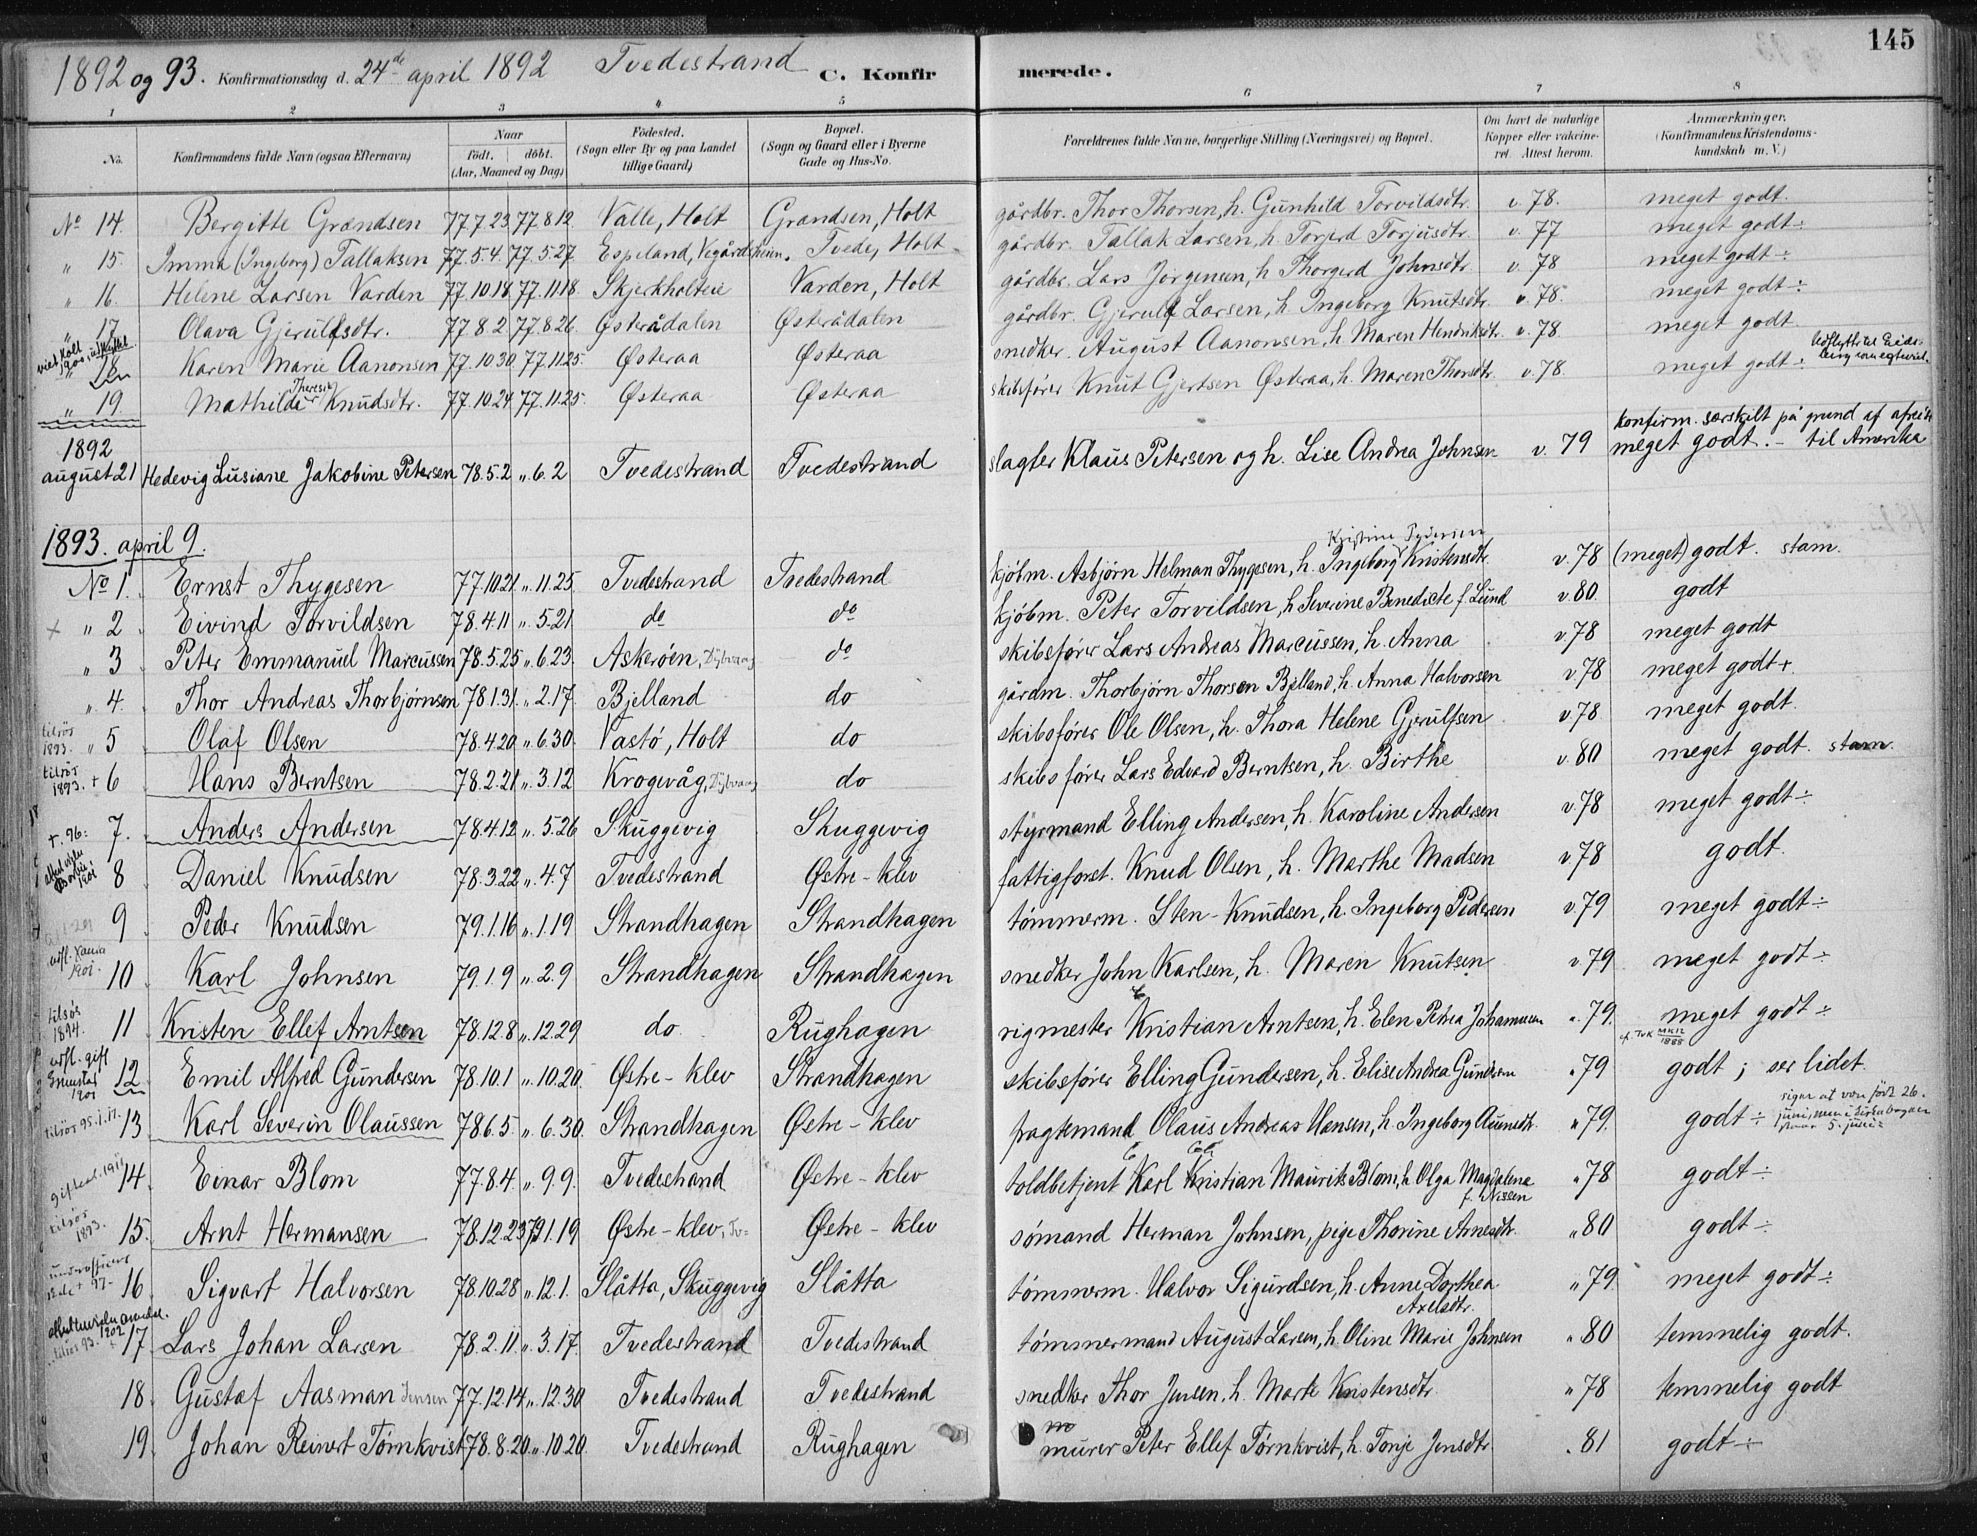 145
1892 og 93. Konfirmationsdag d. 24de april 1892 Tvedestrand C. Konfirmerede.
1 2 3 4 5 6 7 8
No. Konfirmandens fulde Navn (ogsaa Efternavn) Naar født. døbt. (Aar, Maaned og Dag) Fødested. (Sogn eller By og paa Landet tillige Gaard) Bopæl. (Sogn og Gaard eller i Byerne Gade og Hus-No. Forældrenes fulde Navne, borgerlige Stilling (Næringsvei) og Bopæl. Om havt de naturlige Kopper eller vakcineret. Attest herom. Anmærkninger. (Konfirmandens Kristendomskundskab m. V.)
No 14. Bergitte Grændsen 77.7.23 77.8.12. Valle, Holt Grændsen, Holt gårdbr. Thor Thorsen, h. Gunhild Torvildsdtr. v. 78. meget godt.
" 15. Imma (Ingeborg) Tallaksen 77.5.4. 77.5.27 Espeland, Vegårdsheien. Tvede, Holt gårdbr. Tallak Larsen, h. Torjerd Torjusdtr. v. 77 meget godt ÷
" 16. Helene Larsen Varden 77.10.18 77.11.18 Skjerkholteie Varden, Holt gårdbr. Lars Jørgensen, h. Thorgerd Johnsdtr. v. 78 meget godt ÷
" 17 Olava Gjerulfsdtr. 77.8.2. 77.8.26. Østerådalen Østerådalen gårdbr. Gjerulf Larsen, h. Ingeborg Knutsdtr. v. 78. meget godt ÷
" 18 Karen Marie Aanonsen 77.10.30 77.11.25. Østeraa Østeraa snedker. August Aanonsen, h. Maren Hendriksdtr. v. 78 meget godt.
" 19. Mathilde Theresie Knudsdtr. 77.10.24 77.11.25. Østeraa Østeraa skibsfører Knut Gjertsen Østeraa, h. Maren Thorsdtr. v. 78. meget godt ÷
1892 august 21 Hedevig Lusiane Jakobine Petersen 78.5.2 ".6.2 Tvedestrand Tvedestrand slagter Klaus Petersen og h. Lise Andrea Johnsen v. 79 konfirm. særskilt på grund af afreise meget godt. – til Amerika
1893. april 9.
No 1. Ernst Thygesen 77.10.21 ".11.25. Tvedestrand Tvedestrand kjøbm. Asbjørn Helman Thygesen, h. Ingeborg Kristensdtr. v. 78 (meget) godt. stam.
+ " 2 Eivind Torvildsen 78.4.11 ".5.21 do do kjøbm. Peter Torvildsen, h Severine Benedicte f. Lund v. 80. godt
" 3 Peter Emmanuel Marcussen 78.5.25 ".6.23. Askerøen, Dybvaag do skibsfører Lars Andreas Marcussen, h. Anna v. 78 meget godt
" 4. Thor Andreas Thorbjørnsen 78.1.31. ".2.17. Bjelland do gårdm. Thorbjørn Thorsen Bjelland, h. Anna Halvorsen v. 78 meget godt +.
tilsøs 1893. " 5 Olaf Olsen 78.4.20 ".6.30. Vastø, Holt do skibsfører Ole Olsen, h. Thora Helene Gjerulfsen v. 78 meget godt.
tilsøs 1893. + 6 Hans Berntsen 78.2.21 ".3.12 Krogevåg, Dybvaag do skibsfører Lars Edvard Berntsen, h. Birthe v. 80 meget godt. stam.
+. 96: 7. Anders Andersen 78.4.12 ".5.26 Skuggevig Skuggevig styrmand Elling Andersen, h. Karoline Andersen v. 78 meget godt ÷
1901 8 Daniel Knudsen 78.3.22 ".4.7 Tvedestrand Østre-klev fattigforst. Knud Olsen, h. Marthe Madsen v. 78 godt.
9 Peder Knudsen 79.1.16 ".1.19 Strandhagen Strandhagen tømmerm. Sten Knudsen, h. Ingeborg Pedersen v. 79 meget godt ÷
1901. 10 Karl Johnsen 79.1.9 ".2.9 Strandhagen Strandhagen snedker John Karlsen, h. Maren Knutsen v. 79. meget godt ÷
tilsøs 1894. 11 Kristen Ellef Arntsen 78.12.8 ".12.29 do. Rughagen rigmester Kristian Arntsen, h. Elen Petrea Johannesen " 79. meget godt ÷
utfl. gift Grimstad 1901 12 Emil Alfred Gundersen 78.10.1 ".10.20 Østre-klev Strandhagen skibsfører Elling Gundersen, h. Elise Andrea Gundersen " 79 godt; ser lidet.
tilsøs 95. 13 Karl Severin Olaussen 78.6.5. ".6.30. Strandhagen Østre-klev fragtemand Olaus Andreas Hansen, h. Ingeborg Aunsdtr. " 79. godt ÷ siger at være født 26. juni, men i kirkebogen staar 5. juni
14. Einar Blom 77.8.4. ".9.9. Tvedestrand Østre-klev toldbetjent Karl Kristian Maurits Blom, h. Olga Magdalene f. Nissen " 78 godt ÷
tilsøs 1893. 15. Arnt Hermansen 78.12.23 79.1.19 Østre-klev, Østre-klev sømand Herman Johnsen, pige Thorine Arnesdtr. " 80 godt ÷
16 Sigvart Halvorsen 78.10.28 ".12.1. Slåtta, Skuggevig Slåtta tømmerm. Halvor Sigurdsen, h. Anne Dorthea Axelsdtr. " 79. meget godt ÷
tilsøs 93. 1902 17 Lars Johan Larsen 78.2.11 ".3.17. Tvedestrand Tvedestrand tømmermand August Larsen, h. Oline Marie Johnsen " 80 temmelig godt.
18 Gustaf Aasman Jensen 77.12.14 ".12.30 Tvedestrand Tvedestrand snedker Thor Jensen, h. Marte Kristensdtr. " 78 temmelig godt
19. Johan Reinert Tørnkvist 78.8.20 ".10.20. Tvedestrand Rughagen murer Peter Ellef Tørnkvist, h. Tonje Jensdtr. " 81 godt ÷